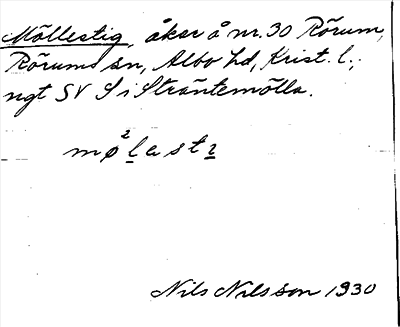 Möllestig, åker å nr. 30 Rörum,
Rörums sn, Albo hd, Krist. l.,
ngt SV S i Sträntemölla.
Nils Nilsson 1930